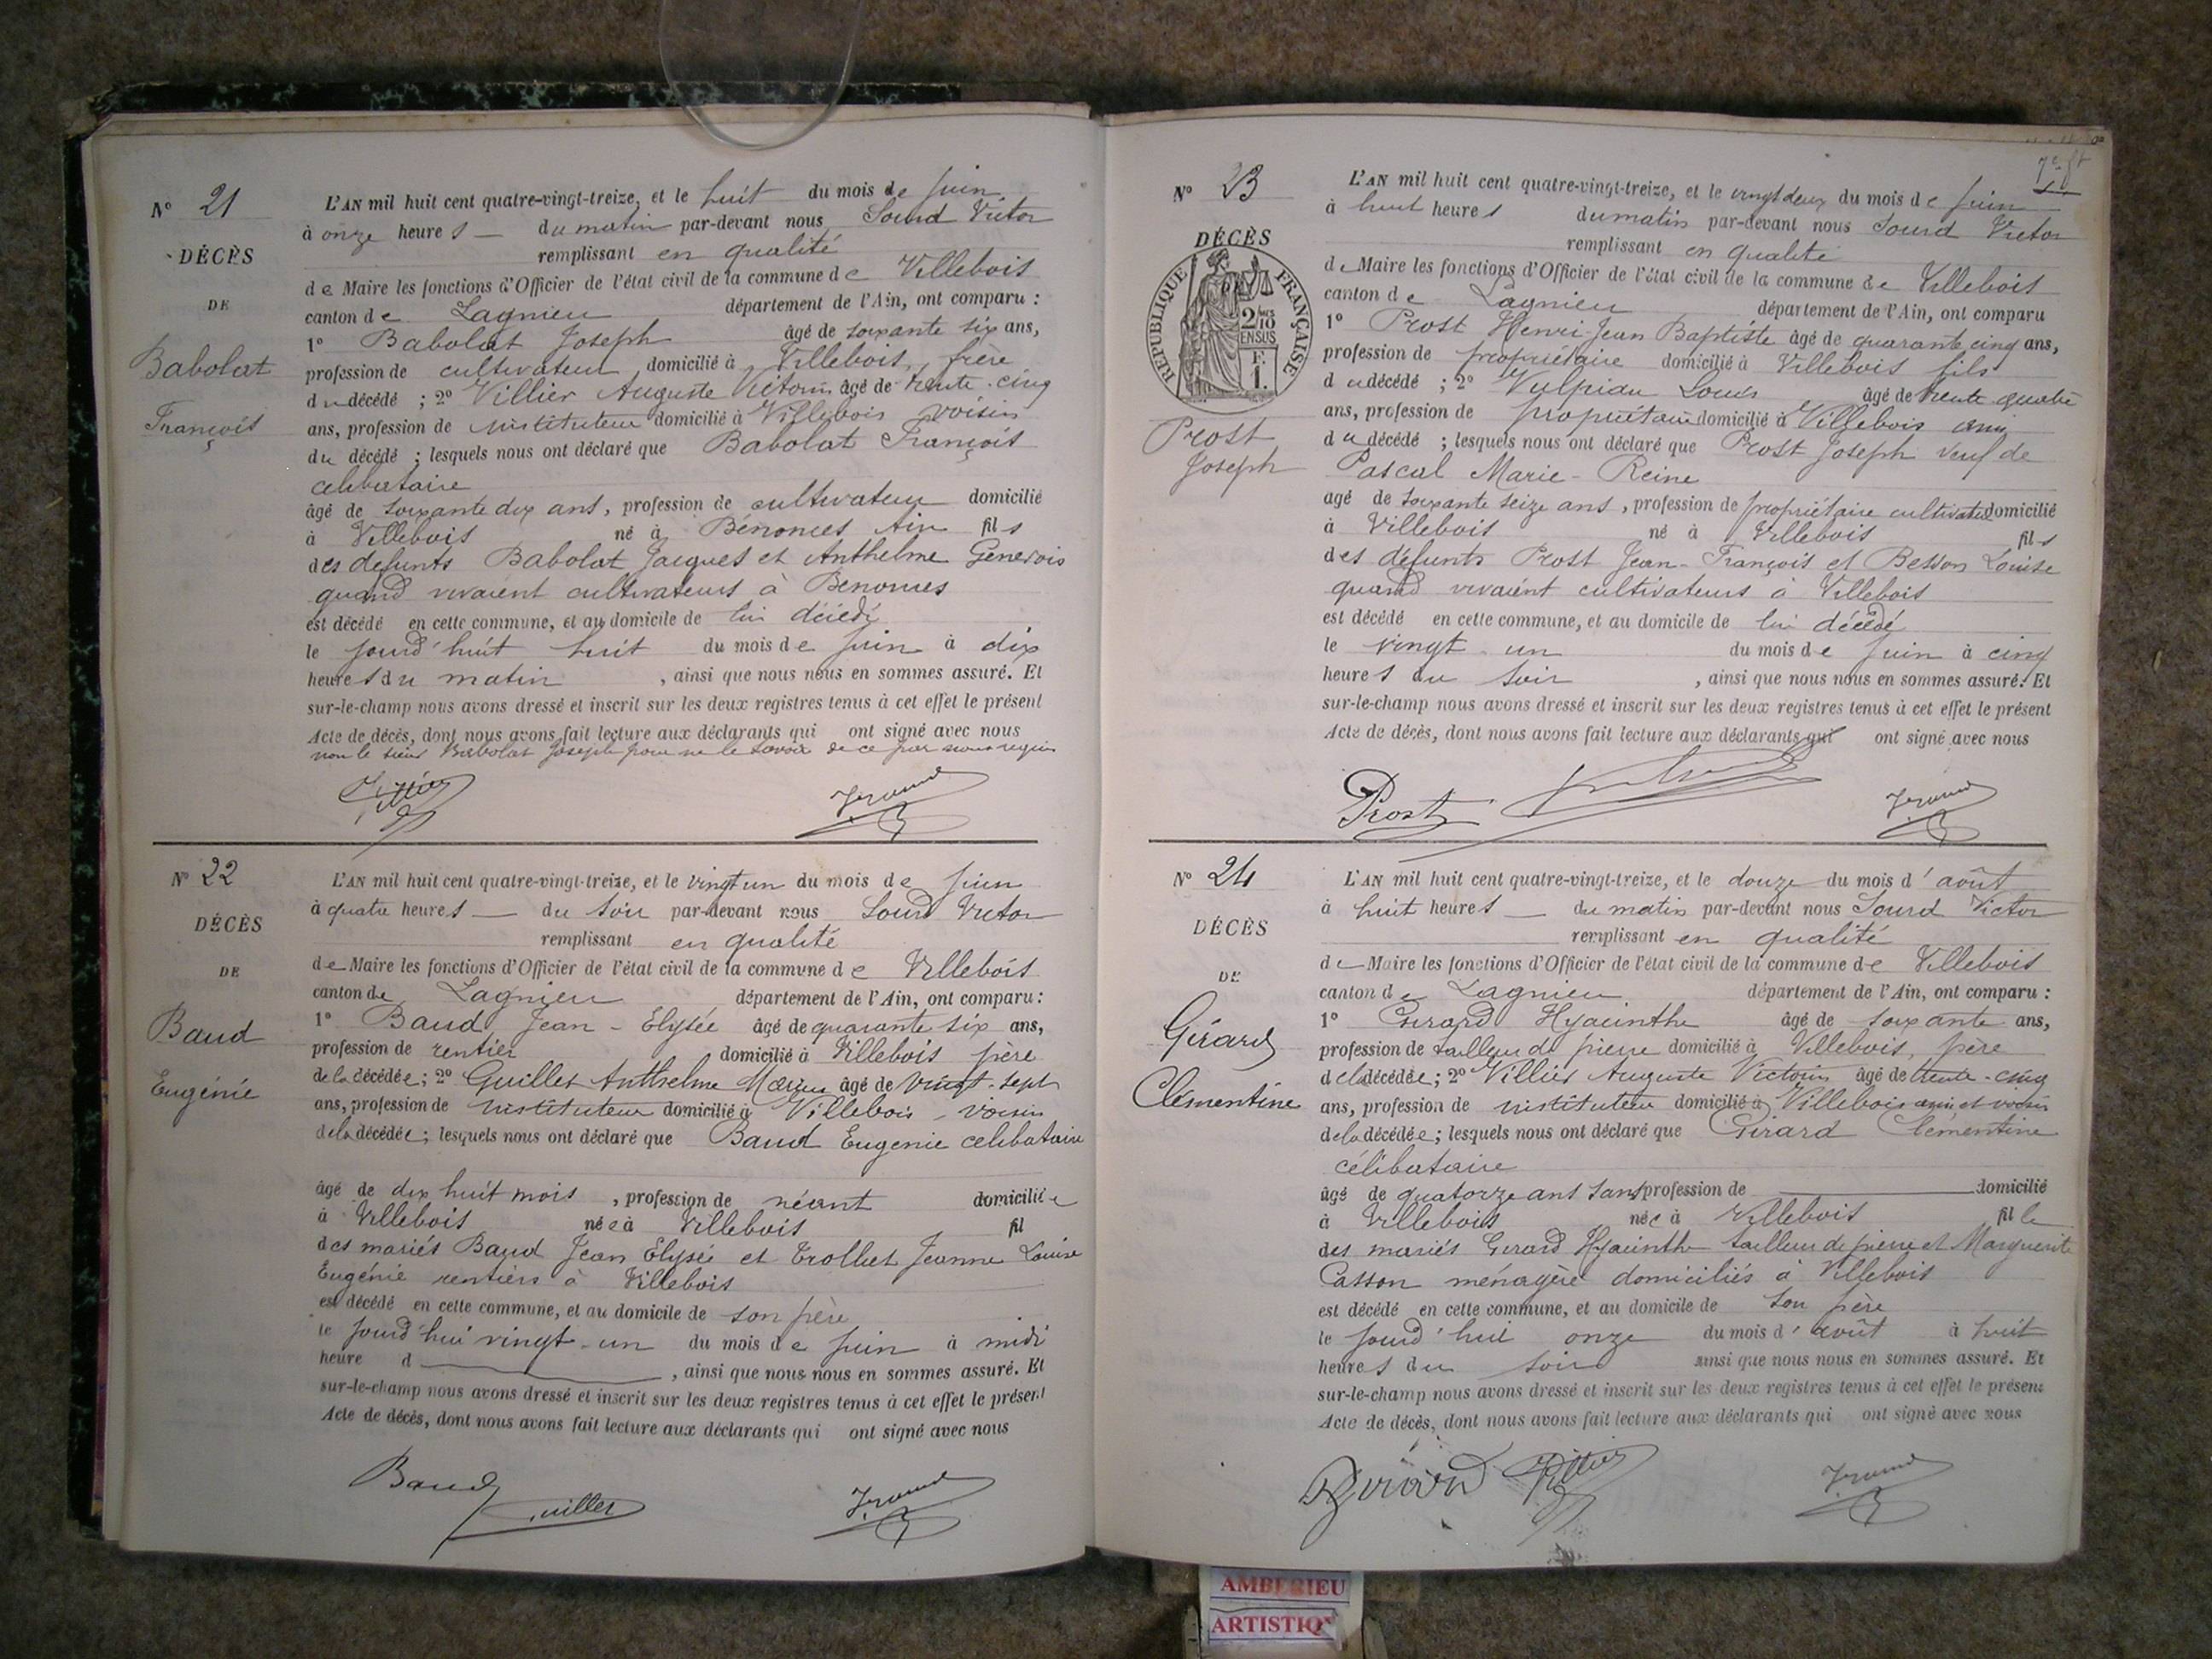 N° 21
DÉCÈS
DE
Babolat
François
L'AN mil huit cent quatre-vingt-treize, et le huit du mois de juin
à onze heures — du matin par-devant nous Sourd Victor
remplissant en qualité
de Maire les fonctions d'Officier de l'état civil de la commune de Villebois
canton de Lagnieu département de l'Ain, ont comparu :
1° Babolat Joseph âgé de soixante six ans,
profession de cultivateur domicilié à Villebois, frère
du décédé ; 2° Villier Auguste Victorin âgé de trente-cinq
ans, profession de instituteur domicilié à Villebois voisin
du décédé ; lesquels nous ont déclaré que Babolat François
célibataire
âgé de soixante dix ans, profession de cultivateur domicilié
à Villebois né à Bénonces Ain fils
des défunts Babolat Jacques et Anthelme Genevois
quand vivaient cultivateurs à Bénonces
est décédé en cette commune, et au domicile de lui décédé
le jourd'huit huit du mois de juin à dix
heures du matin , ainsi que nous nous en sommes assuré. Et
sur-le-champ nous avons dressé et inscrit sur les deux registres tenus à cet effet le présent
Acte de décès, dont nous avons fait lecture aux déclarants qui ont signé avec nous
non le sieur Babolat Joseph pour ne le savoir de ce par nous requis
N° 22
DÉCÈS
DE
Baud
Eugénie
L'AN mil huit cent quatre-vingt-treize, et le vingt un du mois de juin
à quatre heures — du soir par-devant nous Sourd Victor
remplissant en qualité
de Maire les fonctions d'Officier de l'état civil de la commune de Villebois
canton de Lagnieu département de l'Ain, ont comparu :
1° Baud Jean-Elysée âgé de quarante six ans,
profession de rentier domicilié à Villebois père
de la décédée ; 2° Guillet Anthelme Marius âgé de vingt-sept
ans, profession de instituteur domicilié à Villebois, voisin
de la décédée ; lesquels nous ont déclaré que Baud Eugénie célibataire
âgé de dix huit mois , profession de néant domiciliée
à Villebois née à Villebois fil
des mariés Baud Jean Elysée et Trolliet Jeanne Louise
Eugénie rentiers à Villebois
est décédé en cette commune, et au domicile de son père
le jourd'hui vingt-un du mois de juin à midi
heure d , ainsi que nous nous en sommes assuré. Et
sur-le-champ nous avons dressé et inscrit sur les deux registres tenus à cet effet le présent
Acte de décès, dont nous avons fait lecture aux déclarants qui ont signé avec nous
Baud
Guillet
N° 23
DÉCÈS
RÉPUBLIQUE FRANÇAISE
2/10
EN SUS
F.
1.
Prost
Joseph
L'AN mil huit cent quatre-vingt-treize, et le vingt deux du mois de juin
à huit heures du matin par-devant nous Sourd Victor
remplissant en qualité
de Maire les fonctions d'Officier de l'état civil de la commune de Villebois
canton de Lagnieu département de l'Ain, ont comparu
1° Prost Henri-Jean Baptiste âgé de quarante cinq ans,
profession de propriétaire domicilié à Villebois fils
du décédé ; 2° Vulpian Louis âgé de trente-quatre
ans, profession de propriétaire domicilié à Villebois ami
du décédé ; lesquels nous ont déclaré que Prost Joseph veuf de
Pascal Marie-Reine
agé de soixante seize ans, profession de propriétaire cultivateur domicilié
à Villebois né à Villebois fils
des défunts Prost Jean-François et Besson Louise
quand vivaient cultivateurs à Villebois
est décédé en cette commune, et au domicile de lui décédé
le vingt-un du mois de juin à cinq
heures du soir , ainsi que nous nous en sommes assuré. Et
sur-le-champ nous avons dressé et inscrit sur les deux registres tenus à cet effet le présent
Acte de décès, dont nous avons fait lecture aux déclarants qui ont signé avec nous
Prost
N° 24
DÉCÈS
DE
Girard
Clémentine
L'AN mil huit cent quatre-vingt-treize, et le douze du mois d'août
à huit heures — du matin par-devant nous Sourd Victor
remplissant en qualité
de Maire les fonctions d'Officier de l'état civil de la commune de Villebois
canton de Lagnieu département de l'Ain, ont comparu :
1° Girard Hyacinthe âgé de soixante ans,
profession de tailleur de pierre domicilié à Villebois, père
de la décédée ; 2° Villier Auguste Victorin âgé de trente-cinq
ans, profession de instituteur domicilié à Villebois ami et voisin
de la décédée ; lesquels nous ont déclaré que Girard Clementine
célibataire
âgé de quatorze ans sans profession de domicilié
à Villebois née à Villebois fille
des mariés Girard Hyacinthe tailleur de pierre et Marguerite
Casson ménagère domiciliés à Villebois
est décédé en cette commune, et au domicile de son père
le jourd'hui onze du mois d'août à huit
heures du soir ainsi que nous nous en sommes assuré. Et
sur-le-champ nous avons dressé et inscrit sur les deux registres tenus à cet effet le présent
Acte de décès, dont nous avons fait lecture aux déclarants qui ont signé avec nous
Girard Villier
AMBERIEU
ARTISTIQ